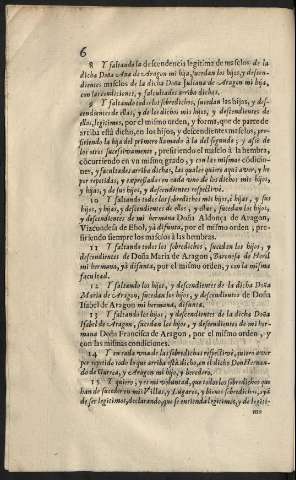 6
8 Y faltando la descendencia legitima de masclos de la
dicha Doña Ana de Aragon mi hija, sucedan los hijos, y descen-
dientes masclos de la dicha Doña Juliana de Aragon mi hija,
con las condiciones, y facultades arriba dichas.
9 Y faltando todos los sobredichos, sucedan las hijas, y des-
cendientes de ellas, y de los dichos mis hijos, y descendientes de
ellos, legitimos, por el mismo orden, y forma, que de parte de
arriba está dicho, en los hijos, y descendientes masclos, pre-
firiendo la hija del primero llamado à la del segundo, y assi de
los otros sucessivamente, prefiriendo el masclo à la hembra,
cõcurriendo en vn mismo grado, y con las mismas cõdicio-
nes, y facultades arriba dichas, las quales quiero aqui aver, y he
por repetidas, y expressadas en cada vno de los dichos mis hijos,
y hijas, y de sus hijos, y descendientes respectivè.
10 Y faltando todos los sobredichos mis hijos, è hijas, y sus
hijos, y hijas, y descendientes de ellos, y ellas, sucedan los hijos,
y descendientes de mi hermana Doña Aldonça de Aragon,
Vizcondesa de Ebol, yà difunta, por el mismo orden, pre-
firiendo siempre los masclos à las hembras.
11 Y faltando todos los sobredichos, sucedan los hijos, y
descendientes de Doña Maria de Aragon, Baronesa de
mi hermana, yà difunta, por el mismo orden, y con la misma
facultad.
12 Y faltando los hijos, y descendientes de la dicha Doña
Maria de Aragon, sucedan los hijos, y descendientes de Doña
Isabel de Aragon mi hermana, difunta.
13 Y faltando los hijos, y descendientes de la dicha Doña
Isabel de Aragon, sucedan los hijos, y descendientes de mi her-
mana Doña Francisca de Aragon, por el mismo orden, y
con las mismas condiciones.
14 Y en cada vna de las sobredichas respectivè, quiero aver
por repetido todo lo que arriba està dicho, en el dicho Don Hernan-
do de Gurrea, y Aragon mi hijo, y heredero.
15 Y quiero, y es mi voluntad, que todos los sobredichos que
han de suceder en mis Villas, y Lugares, y bienes sobredichos, ayã
de ser legitimos, declarando, que se entienda legitimos, y de legiti-
mo